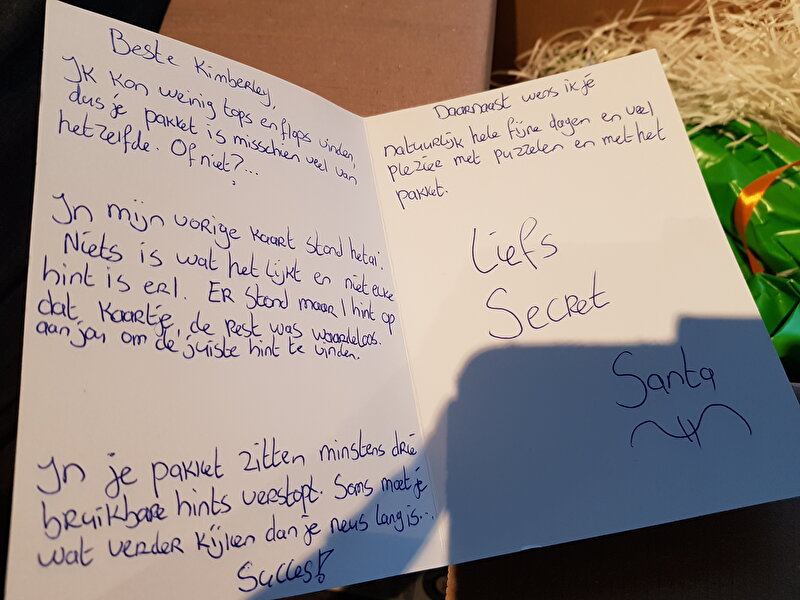 Beste Kimberley,
Ik kon weinig tops en flops vinden,
dus je pakket is misschien veel van
hetzelfde. Of niet?...
In mijn vorige kaart stond het al.
Niets is wat het lijkt en niet elke
hint is er 1. Er stond maar 1 hint op
dat kaartje, de rest was waardeloos.
aan jou om de juiste hint te vinden.
In je pakket zitten minstens drie
bruikbare hints verstopt. Soms moet je
wat verder kijken dan je neus lang is...
Succes!
Daarnaast wens ik je
natuurlijk hele fijne dagen en veel
plezier met puzzelen en met het
pakket.
Liefs
Secret
Santa